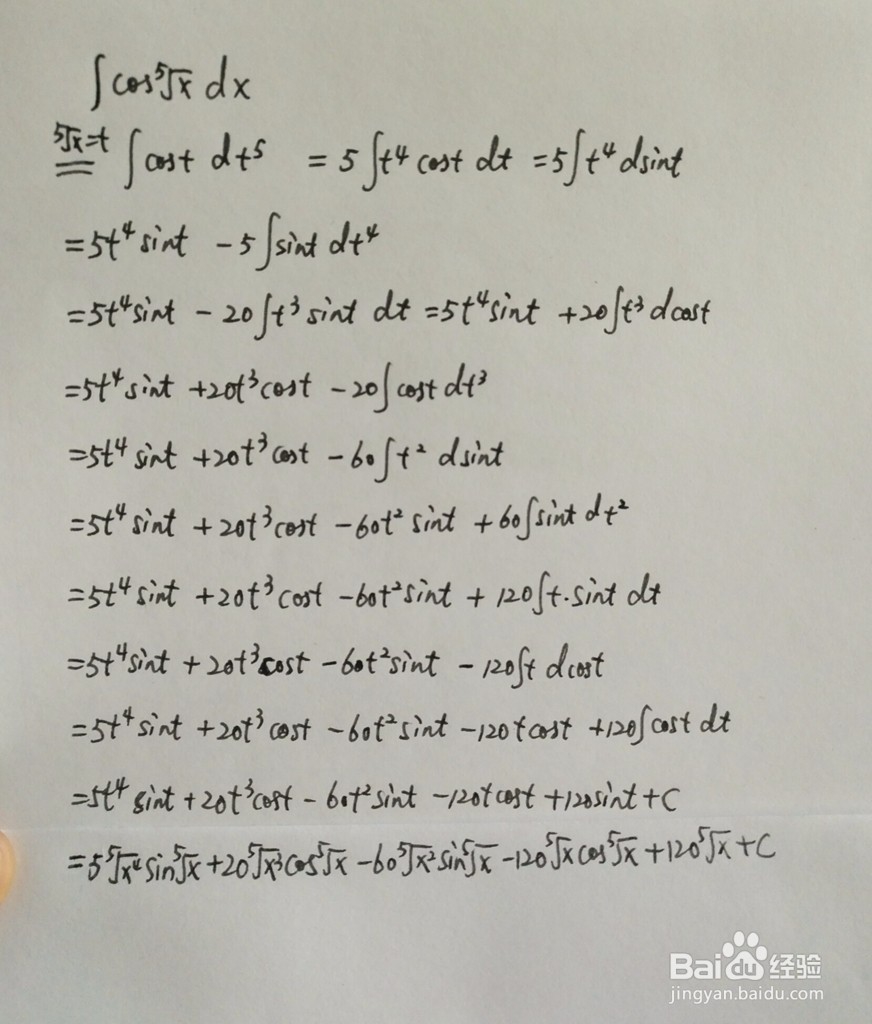 ∫cos⁵√x dx
⁵√x=t
== ∫cost dt⁵ = 5∫t⁴cost dt = 5∫t⁴dsint
=5t⁴sint - 5∫sint dt⁴
=5t⁴sint - 20∫t³sint dt =5t⁴sint +20∫t³dcost
=5t⁴sint +20t³cost -20∫cost dt³
=5t⁴sint +20t³cost -60∫t² dsint
=5t⁴sint +20t³cost -60t²sint +60∫sint dt²
=5t⁴sint +20t³cost -60t²sint +120∫t·sint dt
=5t⁴sint +20t³cost -60t²sint -120∫t dcost
=5t⁴sint +20t³cost -60t²sint -120tcost +120∫cost dt
=5t⁴sint +20t³cost -60t²sint -120tcost +120sint+C
=5⁵√x⁴sin⁵√x +20⁵√x³cos⁵√x -60⁵√x²sin⁵√x -120⁵√xcos⁵√x +120⁵√x +C
Baidu经验
jingyan.baidu.com